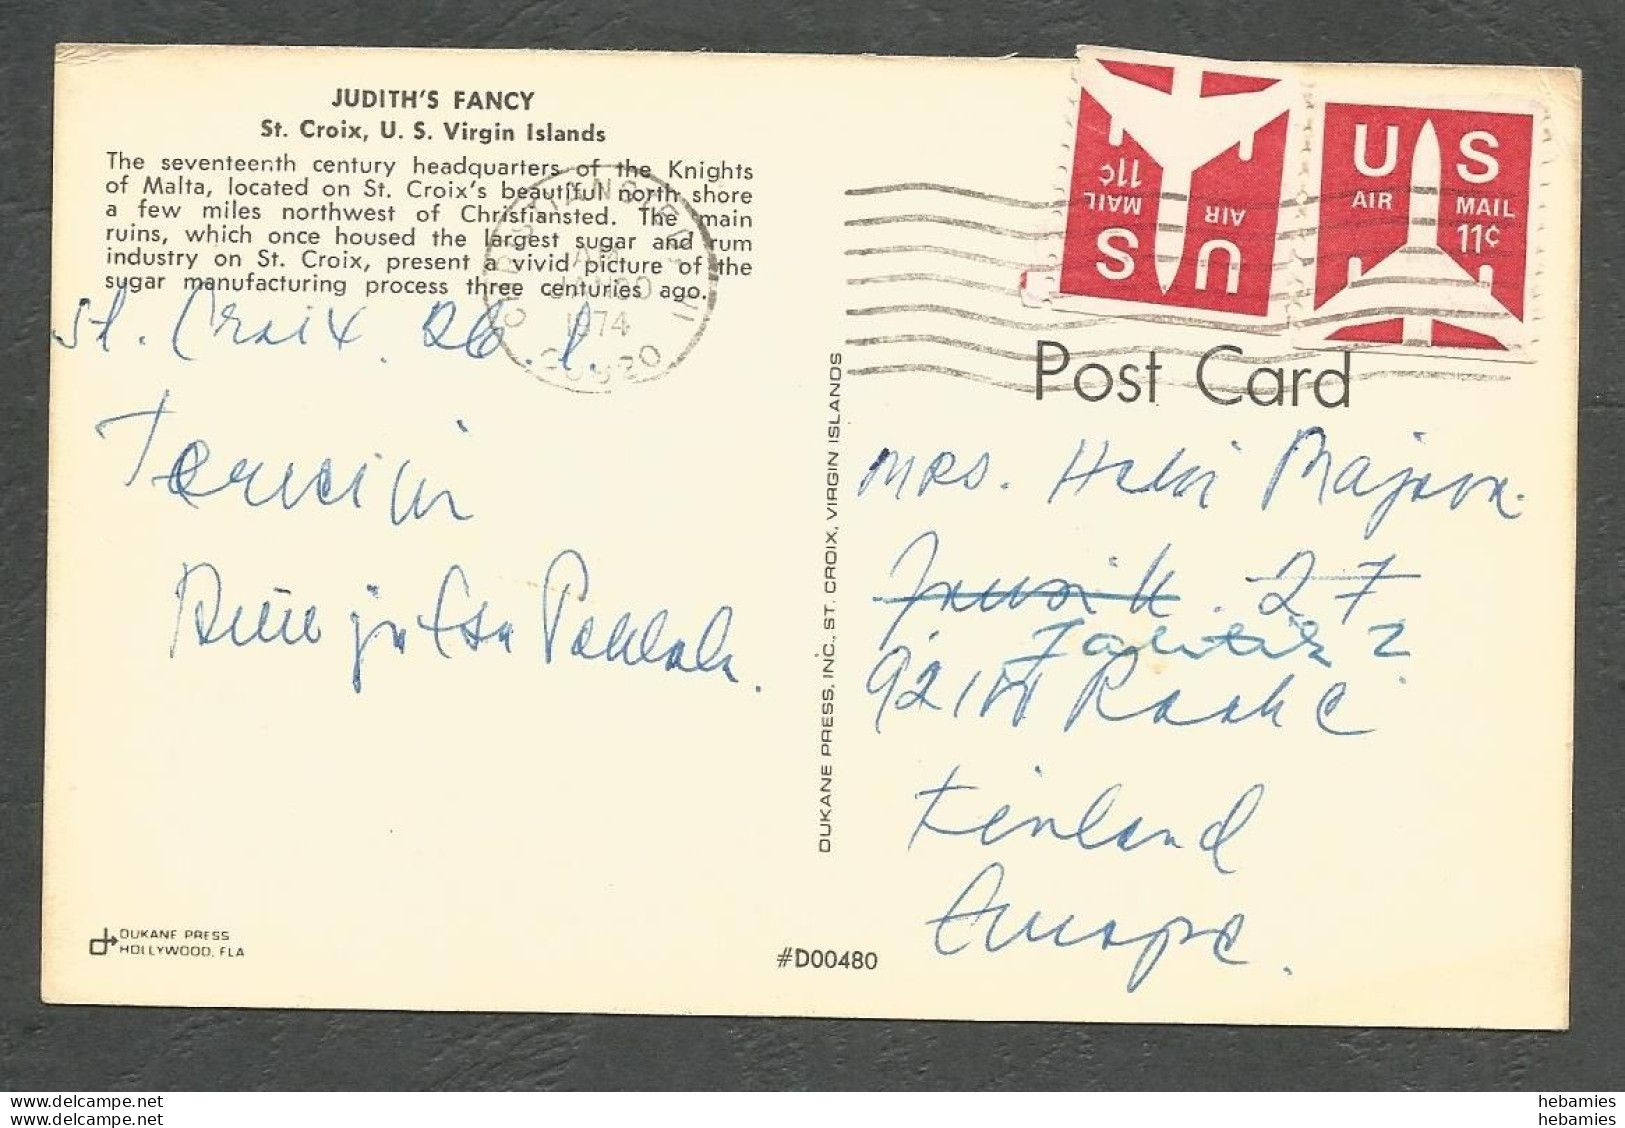 JUDITH'S FANCY
St. Croix, U. S. Virgin Islands
The seventeenth century headquarters of the Knights
of Malta, located on St. Croix's beautiful north shore
a few miles northwest of Christiansted. The main
ruins, which once housed the largest sugar and rum
industry on St. Croix, present a vivid picture of the
sugar manufacturing process three centuries ago.
St. Croix. 26.1.
Terveisin
ja Esa Pakkala.
CHRISTIANSTED VI
AM
1974
00820
DUKANE PRESS
HOLLYWOOD, FLA
DUKANE PRESS, INC., ST. CROIX, VIRGIN ISLANDS
#D00480
US
AIR MAIL
11¢
US
AIR MAIL
11¢
Post Card
MRS. Helvi
27
2
Raahe
Finland
Europe.
hebamies
hebamies
www.delcampe.net
www.delcampe.net